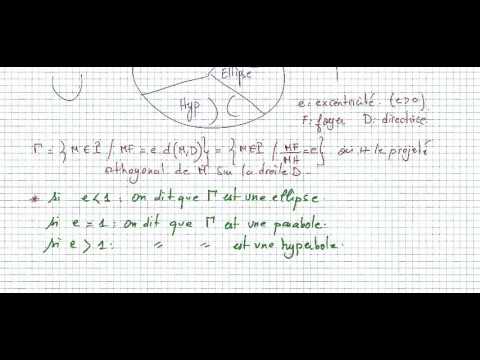 Ellipse
Hyp
e: excentricité. (e>0)
F: foyer D: directrice
Γ = {M∈P / MF = e d(M,D)} = {M∈P / MF/MH = e} où H le projeté
orthogonal de M sur la droite D.
* si e<1 : on dit que Γ est une ellipse.
si e = 1 : on dit que Γ est une parabole.
si e > 1 : " " est une hyperbole.